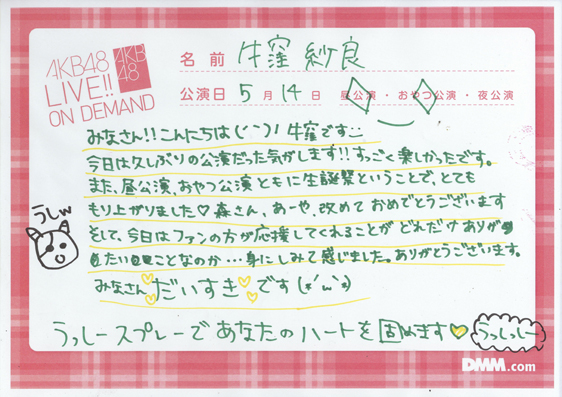 AKB48
LIVE!!
ON DEMAND
AKB
48
名前 牛窪 紗良
公演日 5月14日 昼公演・おやつ公演・夜公演
みなさん!!こんにちは(˙˘˙)ﾉ 牛窪です
今日は久しぶりの公演だった気がします!!すっごく楽しかったです。
また、昼公演、おやつ公演ともに生誕祭ということで、とても
もり上がりました♡森さん、あーや、改めておめでとうございます
そして、今日はファンの方が応援してくれることがどれだけありが
たいことなのか…身にしみて感じました。ありがとうございます。
みなさん♡だいすき♡です(*´ω`*)
うしw
うっしースプレーであなたのハートを固めます♡
うっしっしー
DMM.com